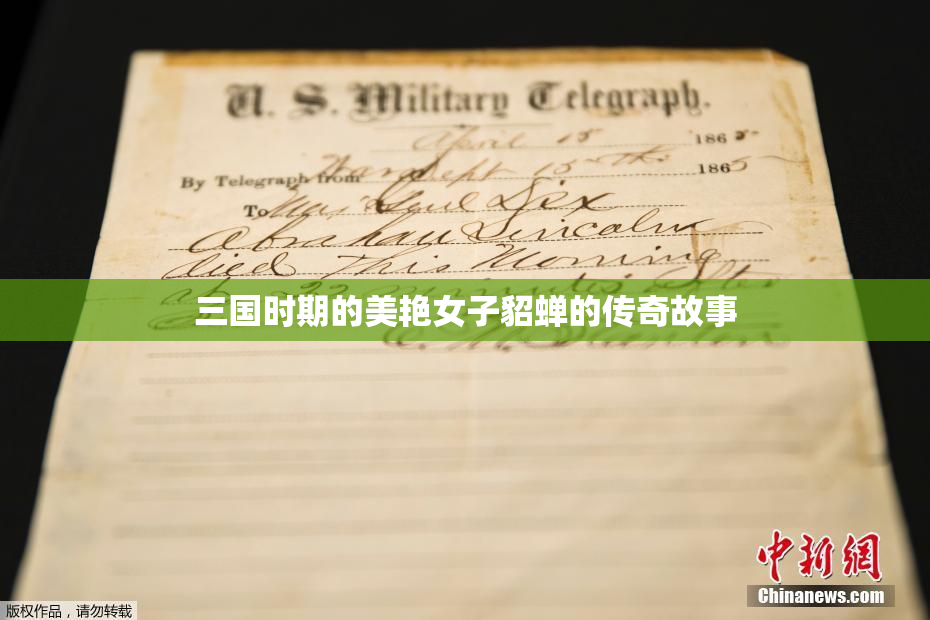 U. S. Military Telegraph.
April 15 1865
By Telegraph from War Dept 15th 1865
To Maj Genl Dix
Abraham Lincoln
died This Morning
at 22 minutes after
三国时期的美艳女子貂蝉的传奇故事
E. M. Stanton
中新網
Chinanews.com
版权作品，请勿转载